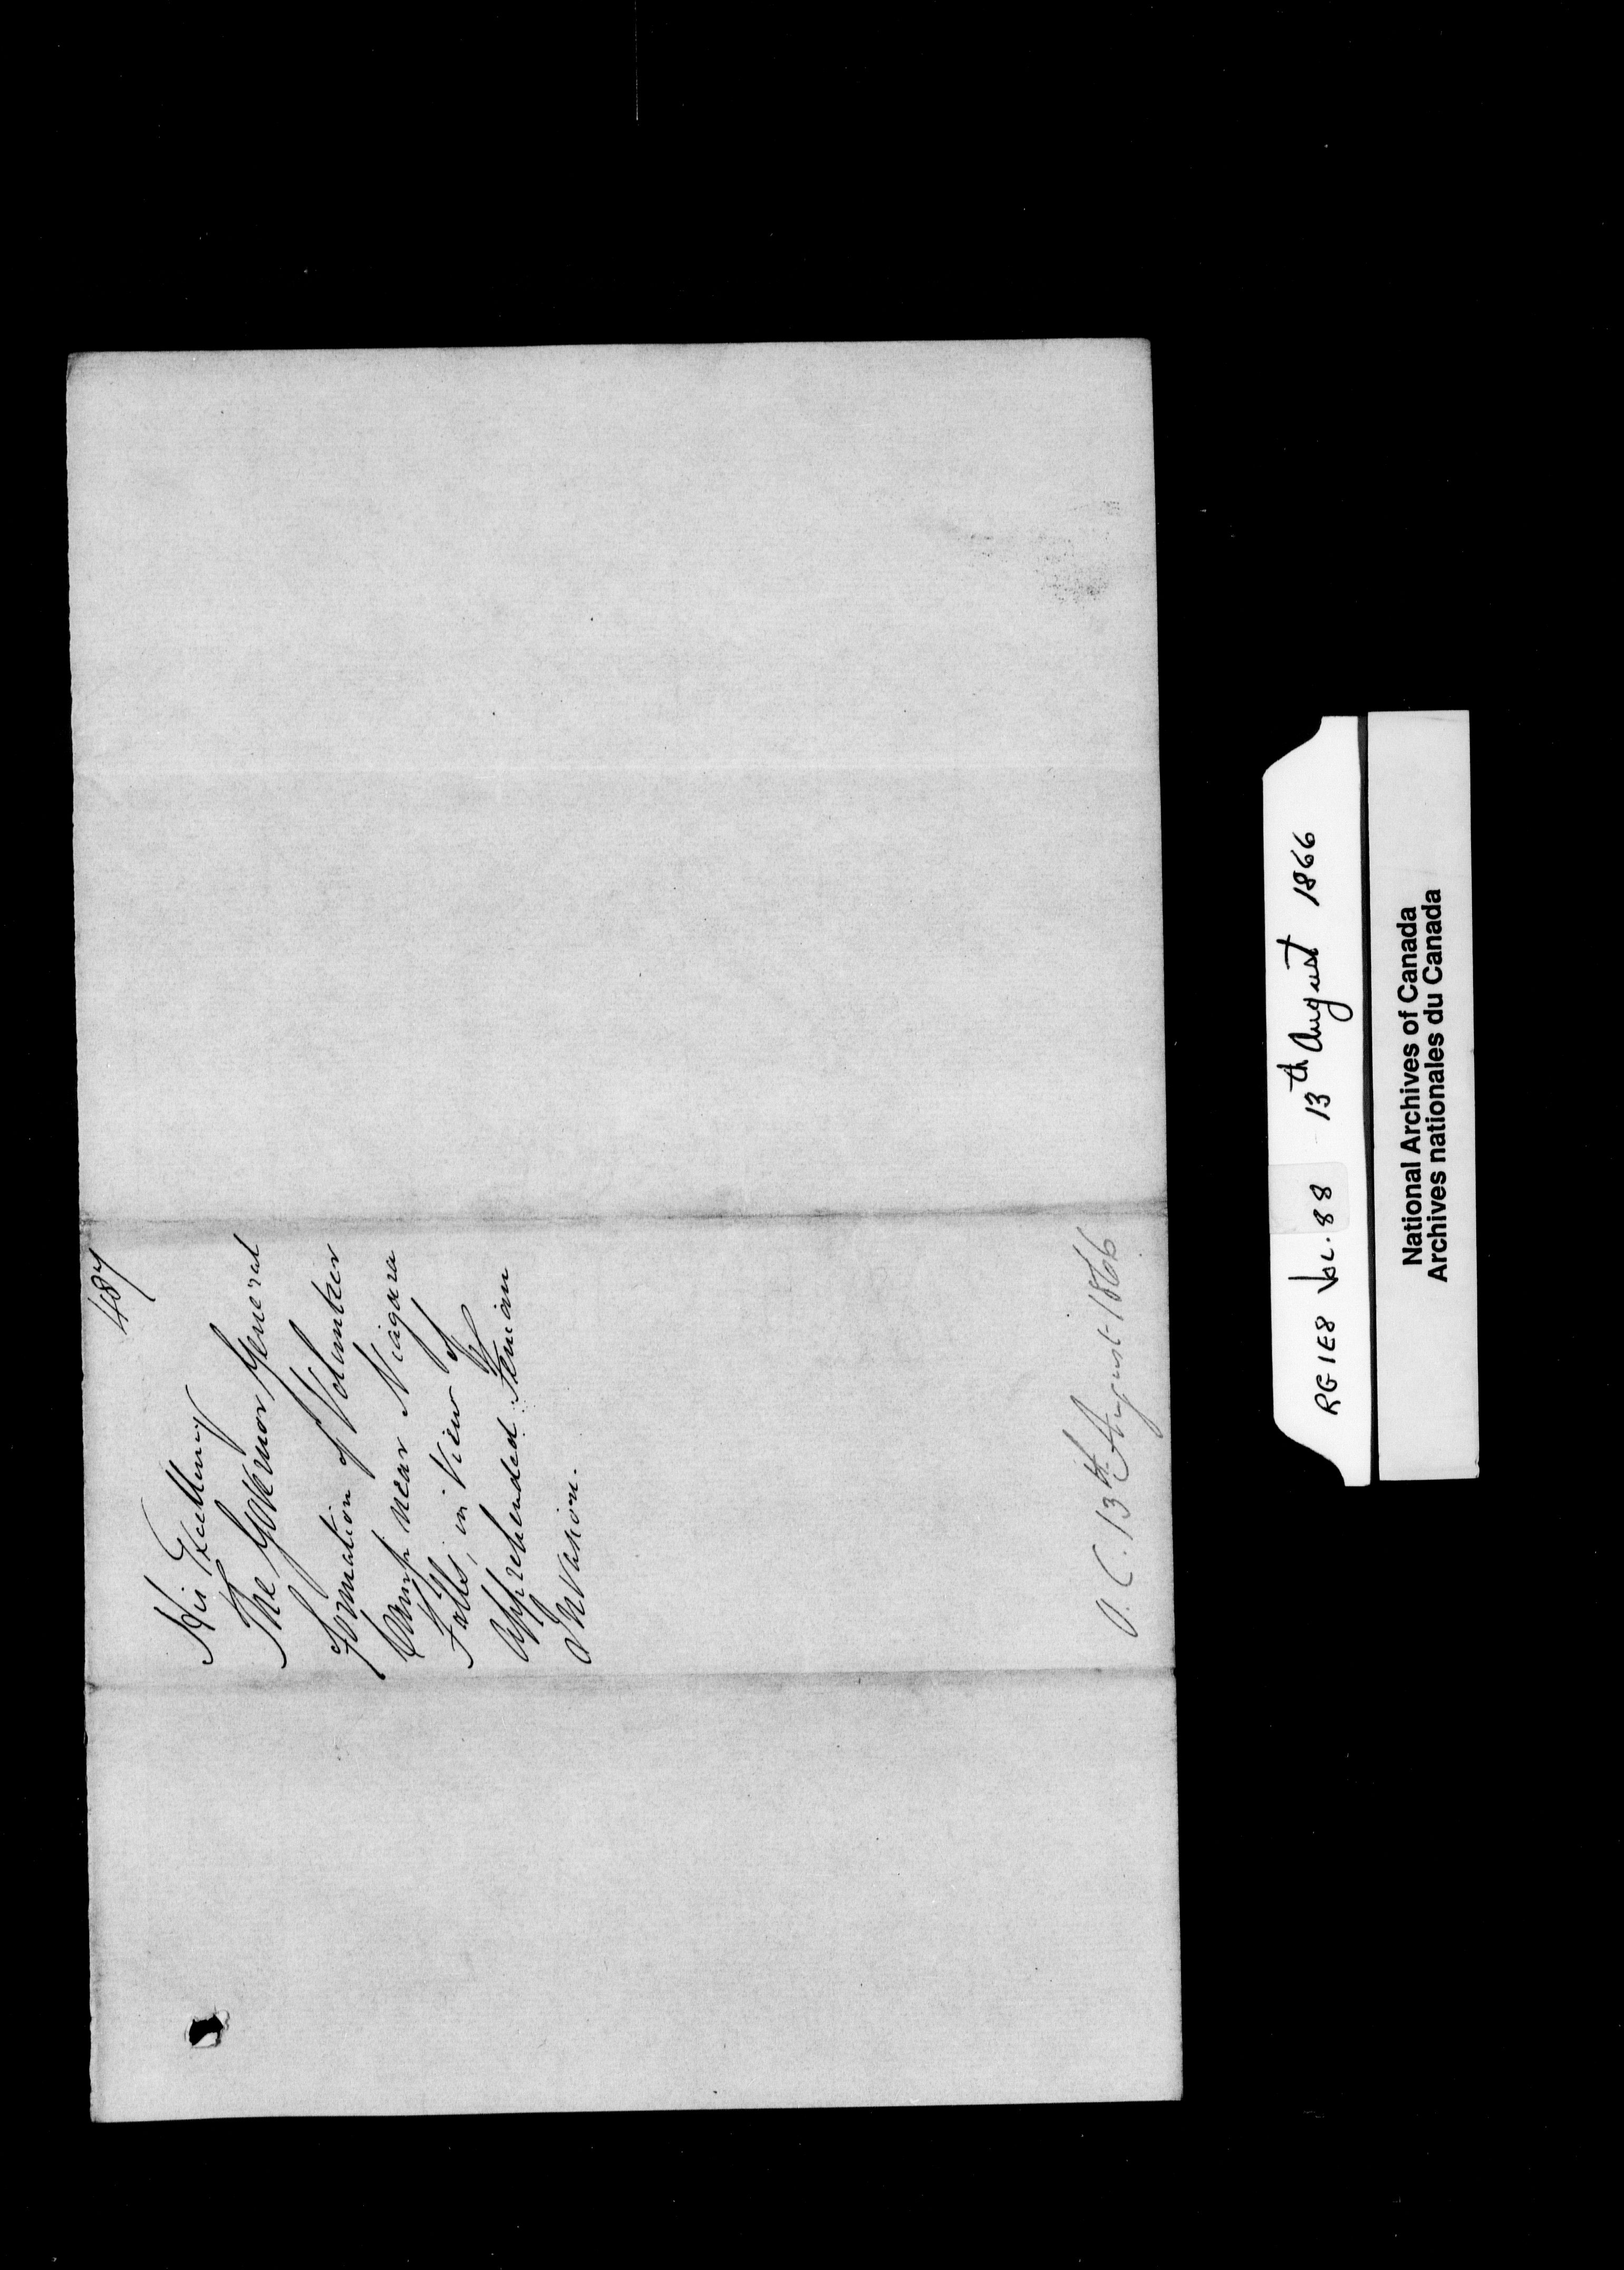 487
His Excellency
The Governor General
Formation of Volunteer
Camp near Niagara
Falls, in View of
apprehended Fenian
Invasion.
O.C. 13th August 1866
RG1E8 Vol. 88 13th August 1866
National Archives of Canada
Archives nationales du Canada